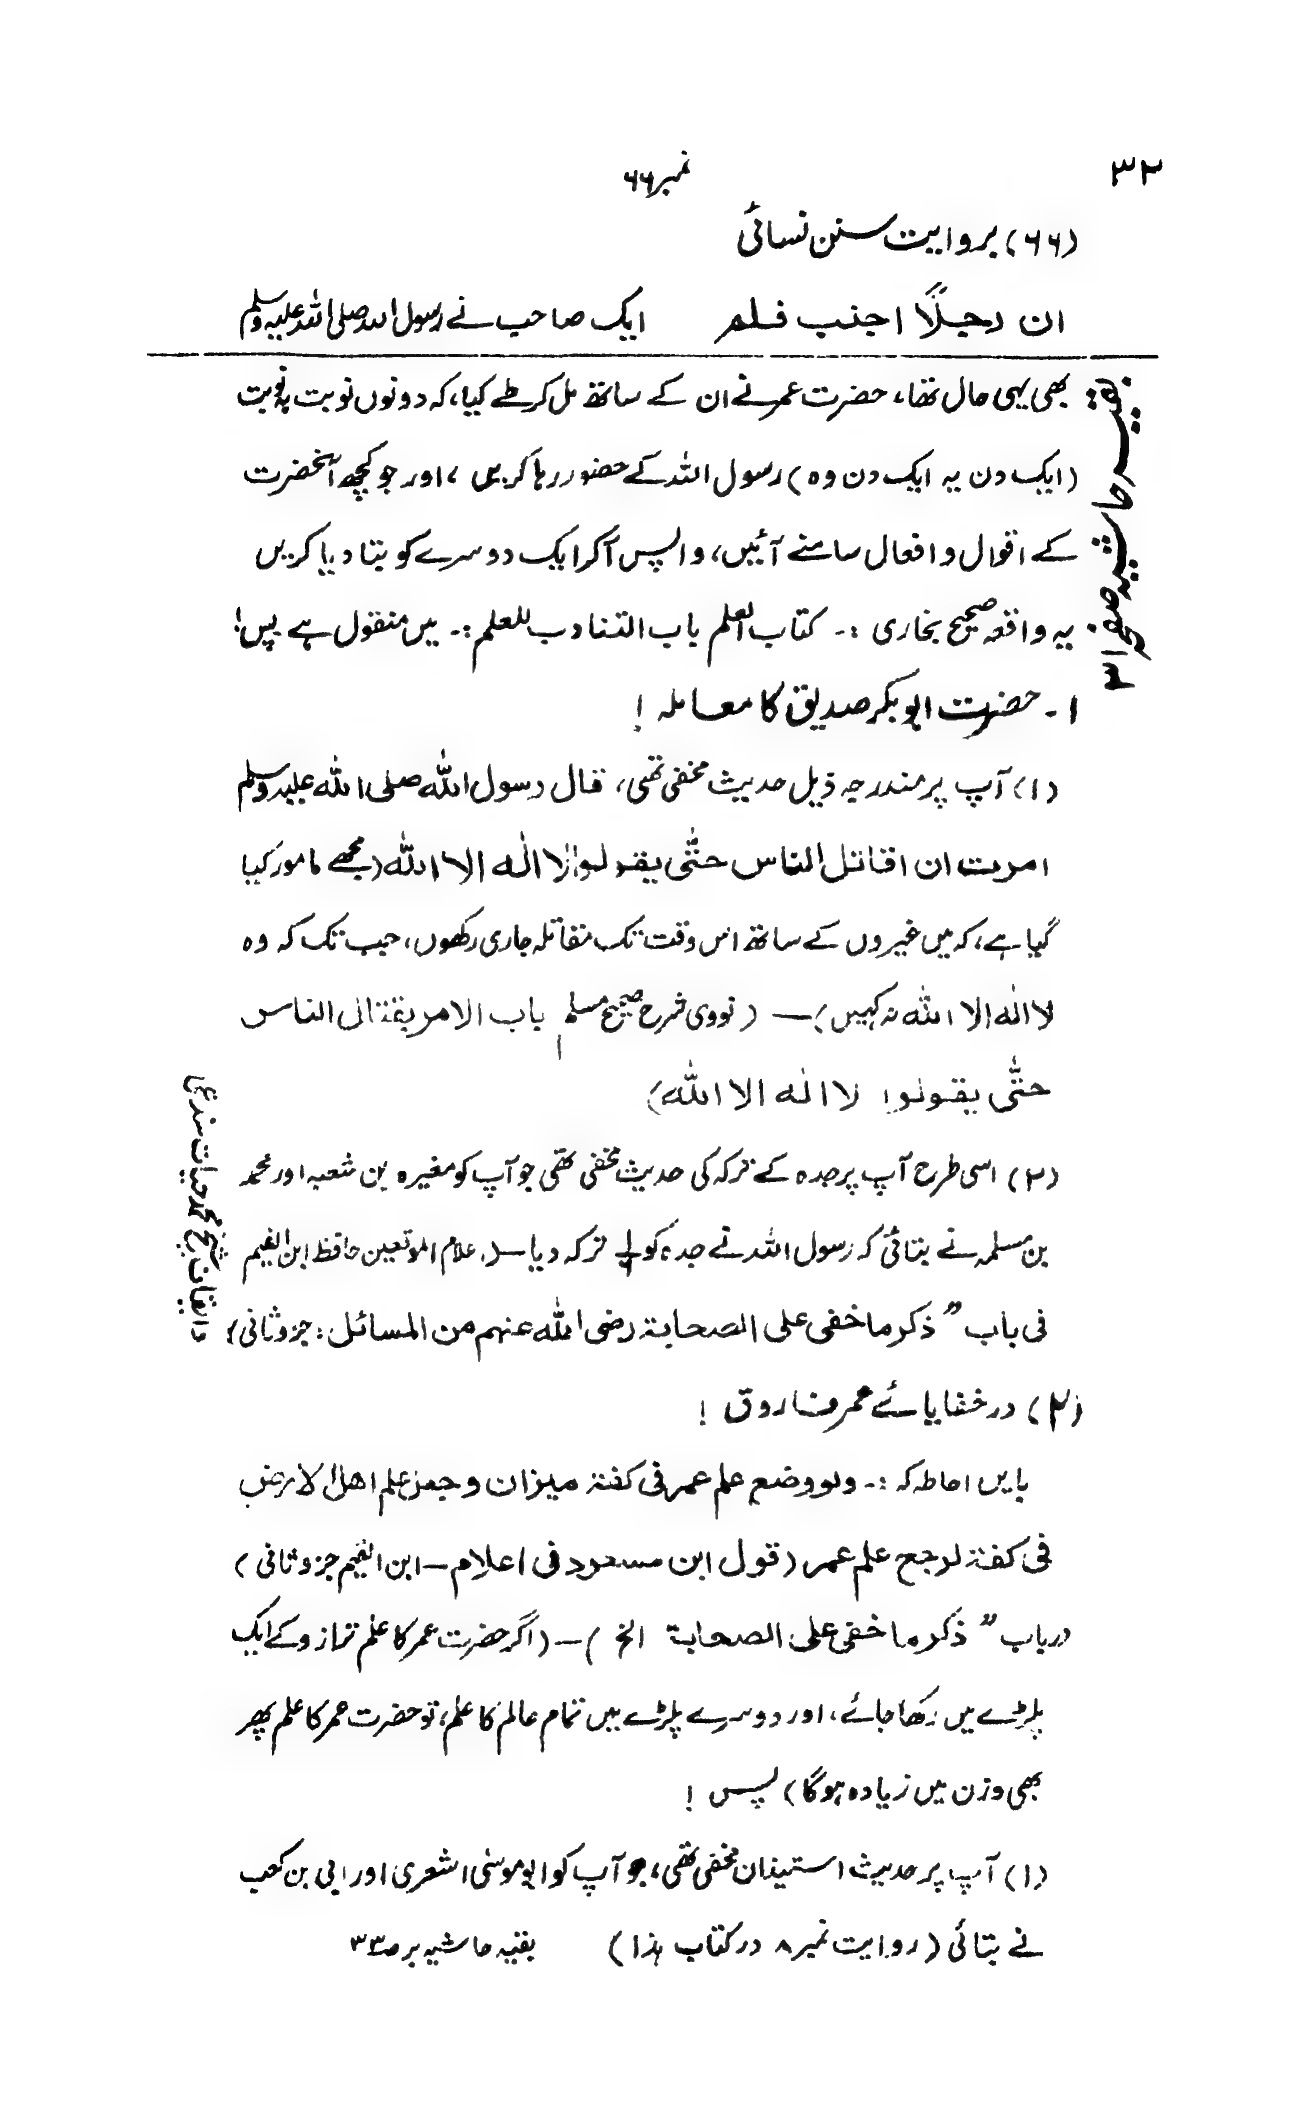 ۳۲
نمبر ۶۶
(۶۶) بروایت سنن نسائی
ان رجلًا اجنب فلم ایک صاحب نے رسول اللہ صلی اللہ علیہ وسلم
بقیہ حاشیہ صفحہ ۳۱
بھی یہی حال تھا، حضرت عمر نے ان کے ساتھ مل کر طے کیا، کہ دونوں نوبت بہ نوبت
(ایک دن یہ ایک دن وہ) رسول اللہ کے حضور رہا کریں، اور جو کچھ آنحضرت
کے اقوال و افعال سامنے آئیں، واپس آ کر ایک دوسرے کو بتا دیا کریں
یہ واقعہ صحیح بخاری :۔ کتاب العلم باب التناوب للعلم :۔ میں منقول ہے پس !
۱۔ حضرت ابوبکر صدیق کا معاملہ !
(۱) آپ پر مندرجہ ذیل حدیث مخفی تھی، قال رسول اللہ صلی اللہ علیہ وسلم
امرت ان اقاتل الناس حتّٰی یقولوا لا الٰہ الا اللہ (مجھے مامور کیا
گیا ہے، کہ میں غیروں کے ساتھ اس وقت تک مقاتلہ جاری رکھوں، جب تک کہ وہ
لا الٰہ الا اللہ نہ کہیں) — (نووی شرح صحیح مسلم باب الامر بقتال الناس
حتّٰی یقولوا لا الٰہ الا اللہ)
(۲) اسی طرح آپ پر جدہ کے ترکہ کی حدیث مخفی تھی جو آپ کو مغیرہ بن شعبہ اور محمد
بن مسلمہ نے بتائی کہ رسول اللہ نے جدہ کو ⅙ ترکہ دیا — (اعلام الموقعین حافظ ابن القیم
فی باب ” ذکر ما خفی علی الصحابۃ رضی اللہ عنہم من المسائل : جزو ثانی)
والیقات شیخ محمد حیات سندھی
(۲) در خفایائے عمر فاروق !
بایں احاطہ کہ :۔ ولو وضع علم عمر فی کفۃ میزان وجعل علم اھل الارض
فی کفۃ لرجح علم عمر (قول ابن مسعود فی اعلام — ابن القیم جزو ثانی)
در باب ” ذکر ما خفی علی الصحابۃ الخ) — (اگر حضرت عمر کا علم ترازو کے ایک
پلڑے میں رکھا جائے، اور دوسرے پلڑے میں تمام عالم کا علم، تو حضرت عمر کا علم پھر
بھی وزن میں زیادہ ہوگا) پس !
(۱) آپ پر حدیث استیذان مخفی تھی، جو آپ کو ابو موسٰی اشعری اور ابی بن کعب
نے بتائی (روایت نمبر ۸ در کتاب ہذا) بقیہ حاشیہ بر صـ۳۳